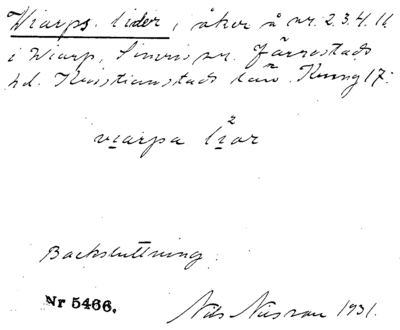 Wiarps lider, åker å nr. 2, 3, 4, 11
i Wiarp, Simris sn. Järrestads
hd. Kristianstads län. Kung 17:
viarpa liar
Backsluttning.
Nr 5466. Nils Nilsson 1931.